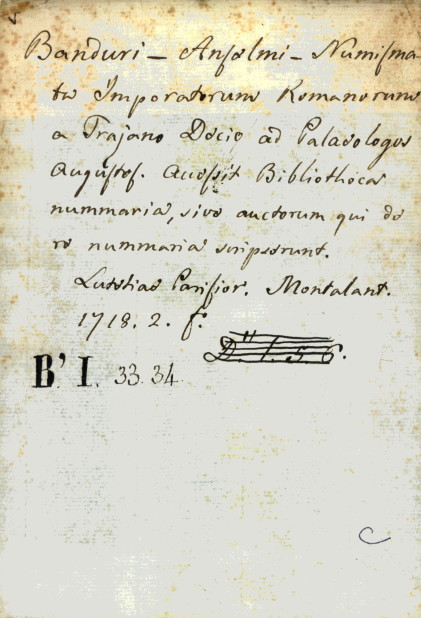 Banduri – Anselmi – Numisma-
ta Imperatorum Romanorum
a Trajano Decio ad Palaeologos
Augustos. Accessit Bibliotheca
nummaria, sive auctorum qui de
re nummaria scripserunt.
Lutetiae Parisior. Montalant.
1718. 2. f.
D" 1. 5 6.
B.' I. 33. 34